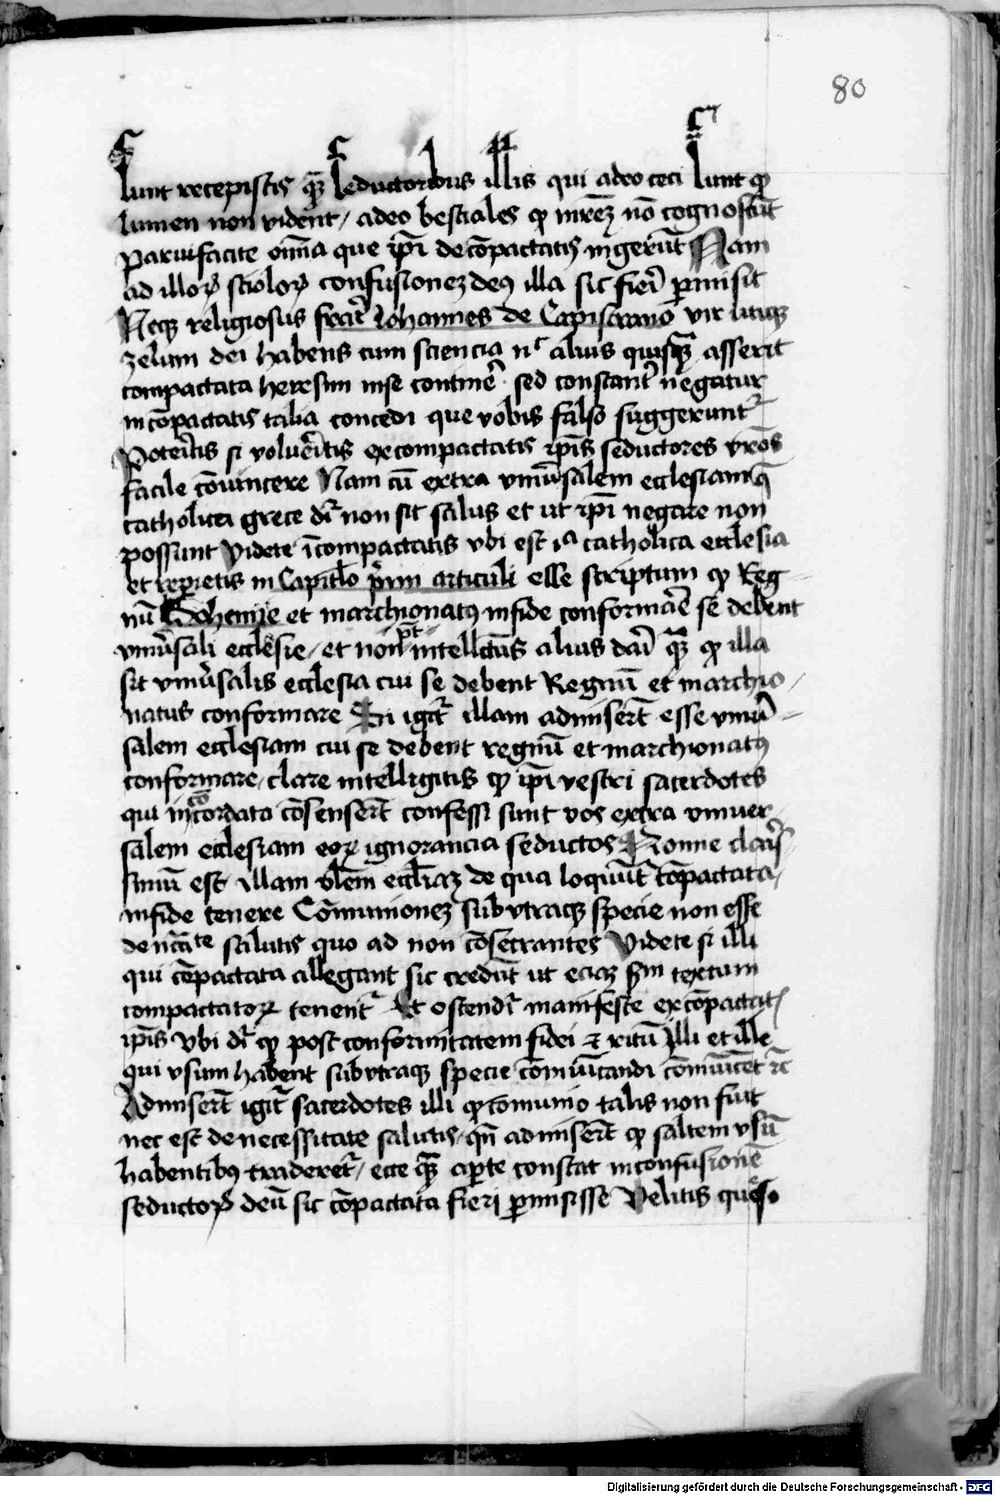 80
sunt recepistis qz̄ seductoribus illis qui adeo ceci sunt qꝫ
lumen non vident / adeo bestiales qꝫ mrēz nō cognoscūt
parvifacite om̄ia que ip̄i de cōpactatis ingerūt Nam
ad illoꝝ scioloꝝ confusionez deꝰ illa sic fieri p̄misit
Neqz religiosus frat̄ Johannes de Capistrano vir utiqz
zelum dei habens cum sciencia nᶜ alius quisqz̄ asserit
compactata heresim inse continē sed constant̄ negatur
incōpactatis talia concedi que vobis falso suggerunt᷑
Poterītis si volueritis excompactatis ip̄is seductores vr̄os
facile cōvincere Nam cū extra vniūsalem ecclesiam q̄
catholica grece dr̄ non sit salus et ut ip̄i negare non
possunt Videte īcompactatis vbi est ıᵃ catholica ecclesia
et reperietis in Capitl̄o p̄rim articuli esse scriptum qꝫ Reg
nū Bohemie et marchionatus infide conformāre se debent
vniūsali ecclesie / et non pt̄ intellectus alius dari qz̄ qꝫ illa
sit vniūsalis ecclesia cui se debent Regnū et marchio /
natus conformare Si igit᷑ illam admisert̄ esse vniū
salem ecclesiam cui se debent regnū et marchionatus
conformare / clare intelligitis qꝫ ip̄i vestri sacerdotes
qui in cōcordata cōsensert̄ confessi sunt vos extra vniuer
salem ecclesiam eoꝝ ignorancia seductos Nonne claris
simū est illam vl̄em eccl̄iaz de qua loquūt᷑ cōpactata /
infide tenere Cōmunionez subvtraqz specie non esse
de nc̄āte salutis quo ad non cōsecrantes Videte si illi
qui cōpactata allegant sic credūt ut eciaz sm̄ textum
compactatoꝝ tenent᷑ Et ostendit᷑ manifeste ex cōpactatꝭ
ip̄is Vbi dr̄ qꝫ post conformitatem fidei ⁊ ritū Illi et ille
qui vsum habent subvtraqz specie cōmūicandi cōmūicet rc̄
Admisert̄ igit᷑ sacerdotes illi qꝫ comunio talis non fuit
nec est de necessitate salutis / qn̄ admisert̄ qꝫ saltem vsū
habentibus traderet᷑ / ecce qz̄ aperte constat inconfusionē
seductoꝝ deū sic cōpactata fieri p̄misisse Velitis queso
Digitalisierung gefördert durch die Deutsche Forschungsgemeinschaft - DFG